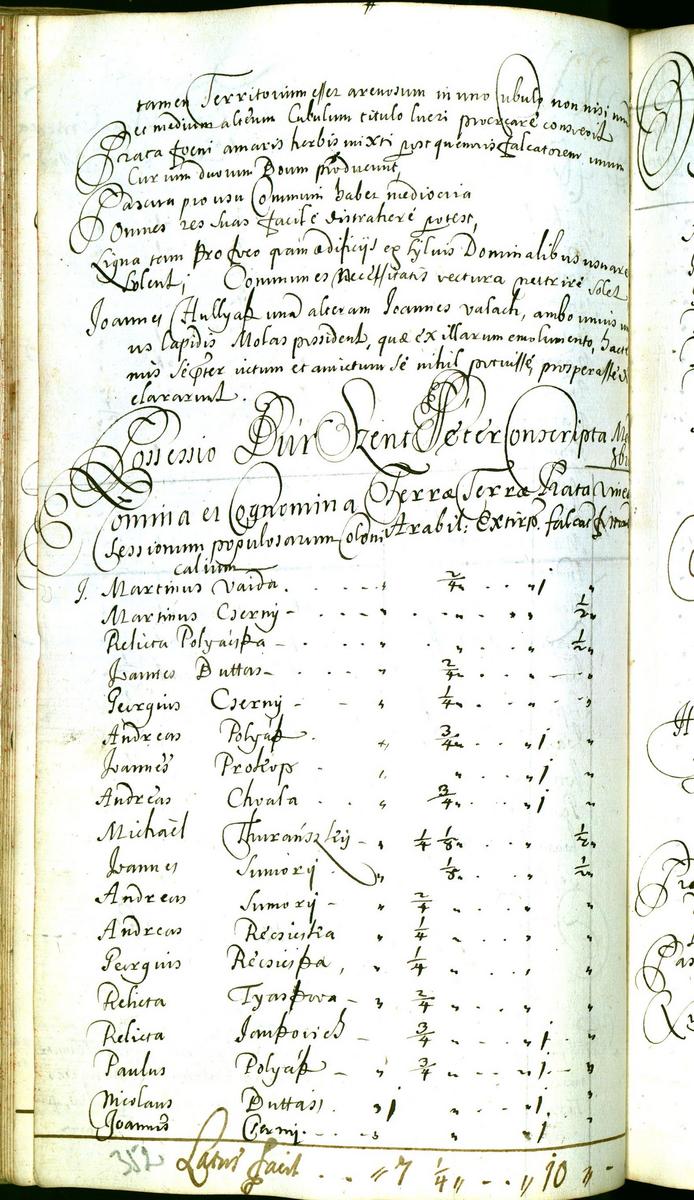 tamen Territorium esset arenosum in uno Cubulo non nisi unu
et medium alterum Cubulum titulo lucri procreare consvevit
Prata foeni amaris herbis mixti pro quemvis falcatorem unum
Currum duorum Boum producunt,
Pascua pro usu Communi habet mediocria
Omnes res suas facile distrahere potest,
Ligna tam pro foco quam ædificijs ex sylvis Dominalibus usuare
solent; Communes Necessitatis vectura solet
Joannes Hullyak una alteram Joannes valach, ambo unius
us lapidis Molas possident, quæ ex illarum emolumento, hacte
nus victum et amictum se nihil potuisse, prosperasse d
clararunt.
Possessio Bur Szent Péter Conscripta
Nomina et Cognomina Terræ Terræ Prata Vinea
Sessionum populosarum Coloni Arabil: Extirp. falcat
calium
1. Martinus Vaida . . . " 2/4 " . . " 1 "
Martinus Cserny - . . . " . . . . " " 1/2 "
Relicta Polyácska - . . . " " . . " 1/2 "
Joannes Duttas - . . . " 2/4 " . . . "
Georgius Cserny - - " 1/4 " . . . "
Andreas Polyák . " 3/4 " . . " 1 "
Joannes Prokop - " " . . " 1 "
Andreas Chvala . . " 3/4 " . . " 1 "
Michaël Thuránszky - " 1/4 1/8 " . . 1/2 "
Joannes Sumory " 1/8 " . . 1/2 "
Andreas Sumory - " 2/4 " . . "
Andreas Récsicska " 1/4 " . . . "
Georgius Récsicska , " 1/4 " . . . "
Relicta Tyapkova - " 2/4 " . . " "
Relicta Jankovich - " 3/4 " . . " 1 "
Paulus Polyák - " 3/4 " . . " 1 - "
Nicolaus Duttas " 1 " . " 1 . "
Joannes Cserny . . . " " " 1 "
352 Latus facit . . " 7 1/4 " - . . " 10 " -